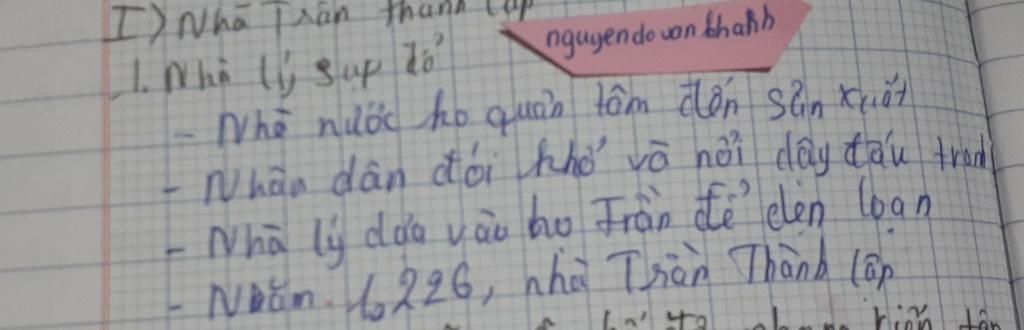 I) Nhà Trần thành lập
nguyendovankhanh
1. Nhà lý sụp đổ
- Nhà nước ko quan tâm đến sản xuất
- Nhân dân đói khổ và nổi dậy đấu tranh
- Nhà lý dựa vào họ Trần để dẹn loạn
- Năm 1226, nhà Trần Thành lập